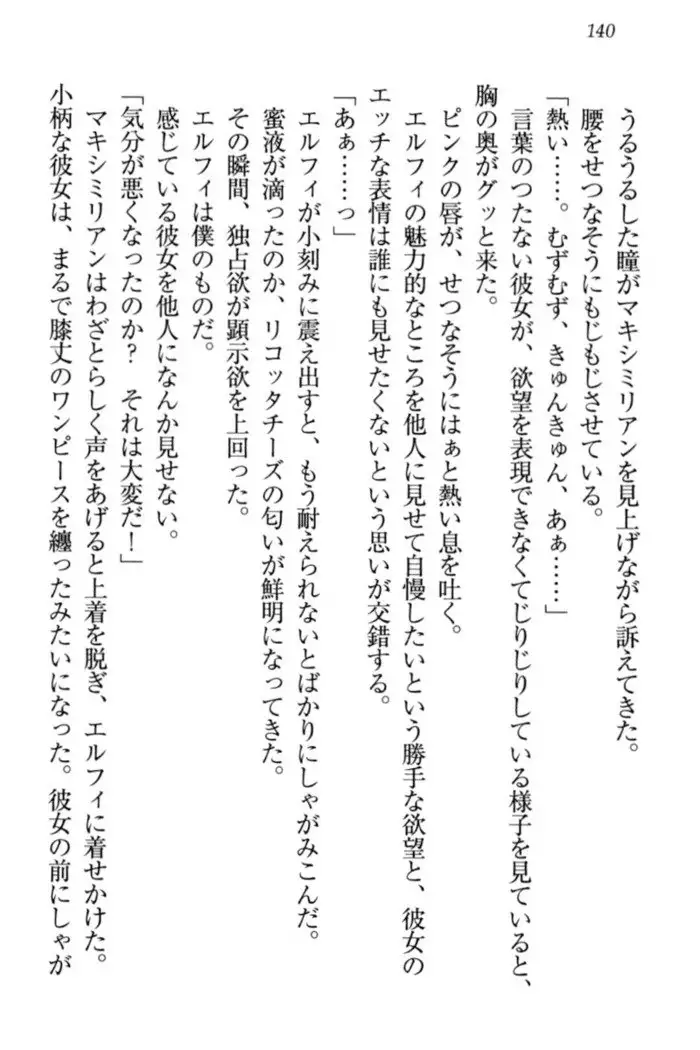 140
うるうるした瞳がマキシミリアンを見上げながら訴えてきた。
腰をせつなそうにもじもじさせている。
「熱い……。むずむず、きゅんきゅん、あぁ……」
言葉のつたない彼女が、欲望を表現できなくてじりじりしている様子を見ていると、
胸の奥がグッと来た。
ピンクの唇が、せつなそうにはぁと熱い息を吐く。
エルフィの魅力的なところを他人に見せて自慢したいという勝手な欲望と、彼女の
エッチな表情は誰にも見せたくないという思いが交錯する。
「あぁ……っ」
エルフィが小刻みに震え出すと、もう耐えられないとばかりにしゃがみこんだ。
蜜液が滴ったのか、リコッタチーズの匂いが鮮明になってきた。
その瞬間、独占欲が顕示欲を上回った。
エルフィは僕のものだ。
感じている彼女を他人になんか見せない。
「気分が悪くなったのか？　それは大変だ！」
マキシミリアンはわざとらしく声をあげると上着を脱ぎ、エルフィに着せかけた。
小柄な彼女は、まるで膝丈のワンピースを纏ったみたいになった。彼女の前にしゃが